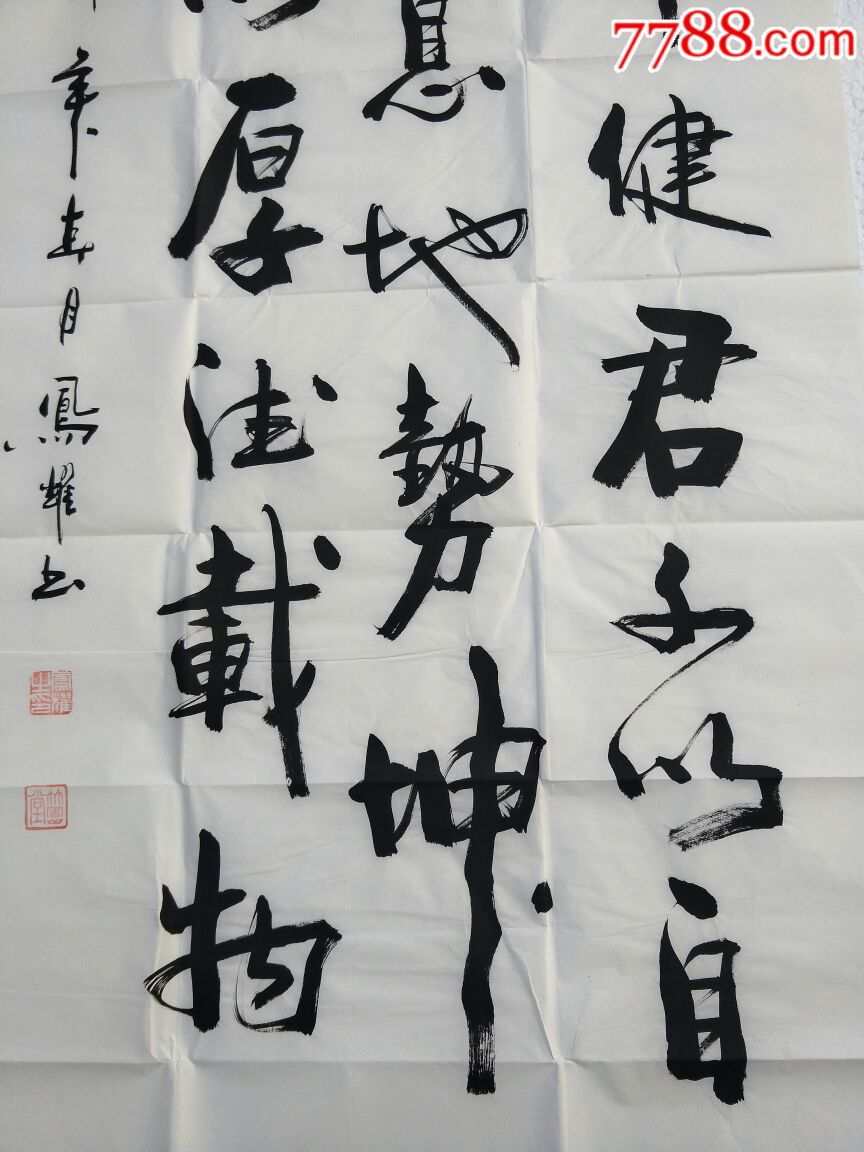 7788.com
健君子以自
息地势坤
厚德載物
年春月鳳耀书